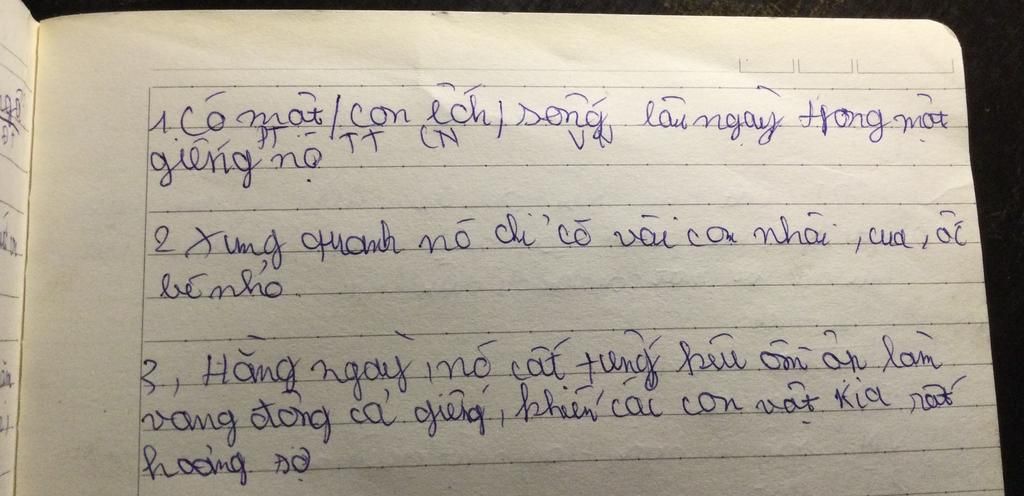 1. Có một / con ếch / sống lâu ngày trong một
PT TT CN VN
giếng nọ
2 Xung quanh nó chỉ có vài con nhái, cua, ốc
bé nhỏ
3, Hằng ngày, nó cất tiếng kêu ồm ộp làm
vang động cả giếng, khiến các con vật kia rất
hoảng sợ